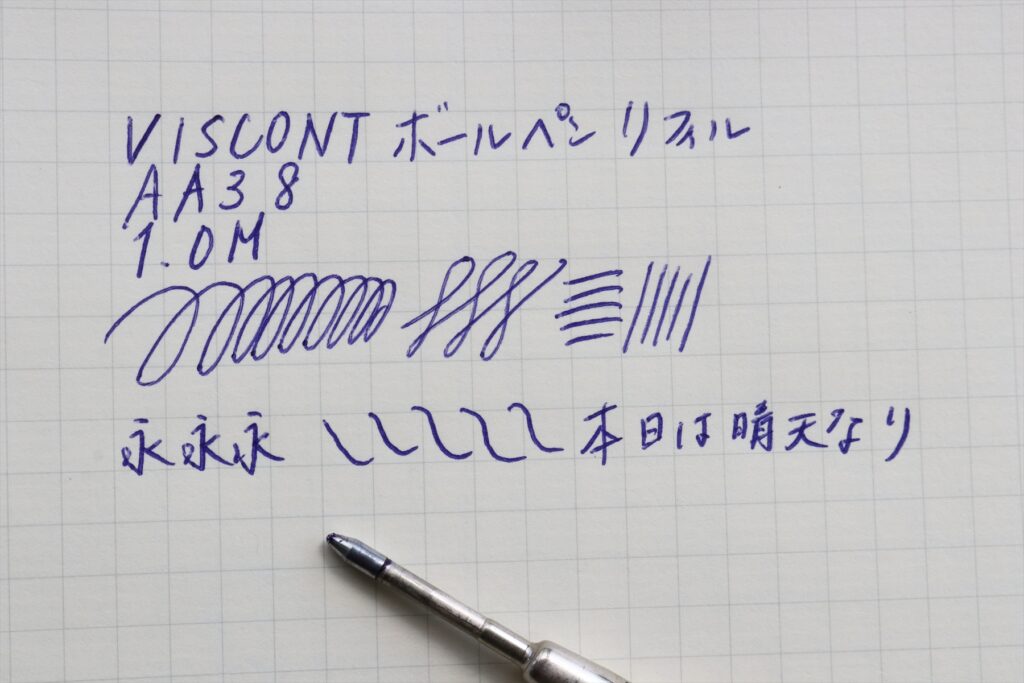 VISCONT ボールペン リフィル
AA38
1.0M
永永永 本日は晴天なり